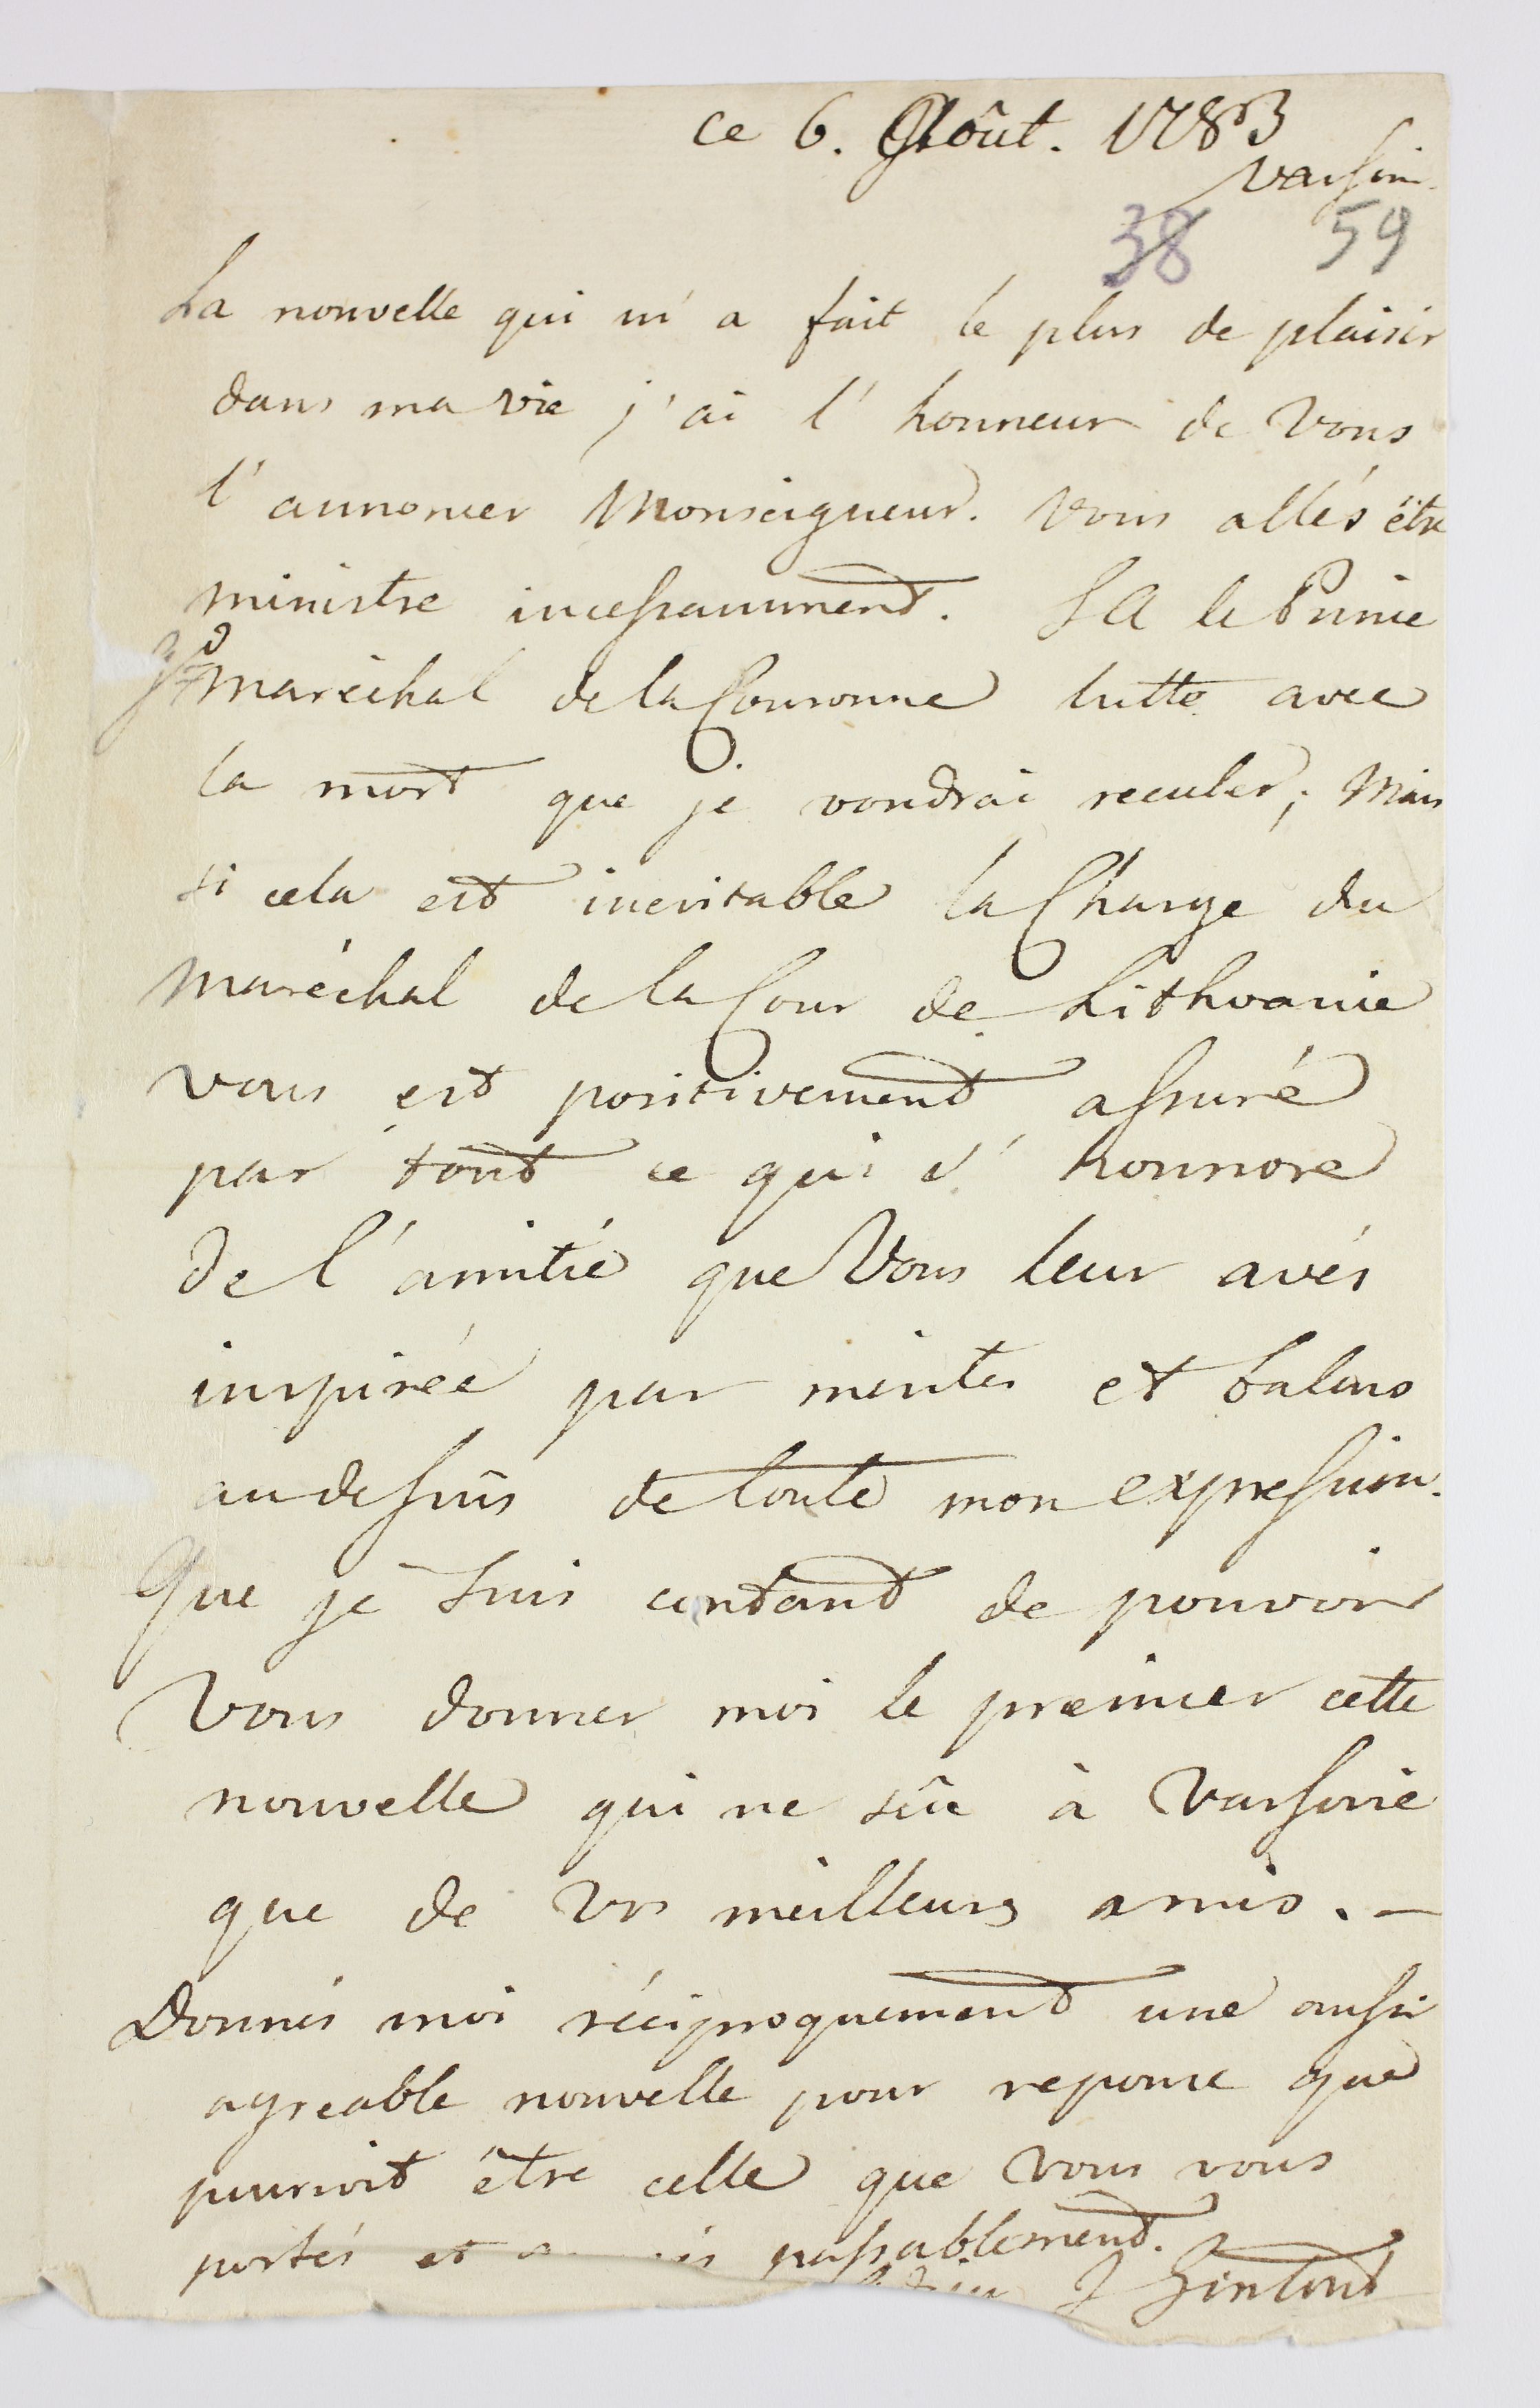 ce 6. Aôut. 1783
Varsovie
38 59
La nouvelle qui m'a fait le plus de plaisir
dans ma vie j'ai l'honneur de Vous
l'annoncer Monseigneur. Vous allés être
ministre incessamment. S A le Prince
Gd Maréchal de la Couronne lutte avec
la mort que je voudrai reculer; Mais
si cela est inevitable la Charge du
Maréchal de la Cour de Lithvanie
vous est positivement assuré
par tout ce qui s'honnore
de l'amitié que Vous leur avés
inspirée par merites et talens
audessus de toute mon expression.
Que je suis contant de pouvoir
Vous donner moi le premier cette
nouvelle qui ne sûe à Varsovie
que de Vos meilleurs amis. —
Donnés moi réciproquement une aussi
agreable nouvelle pour reponse que
pourroit être celle que Vous vous
portés et passablement.